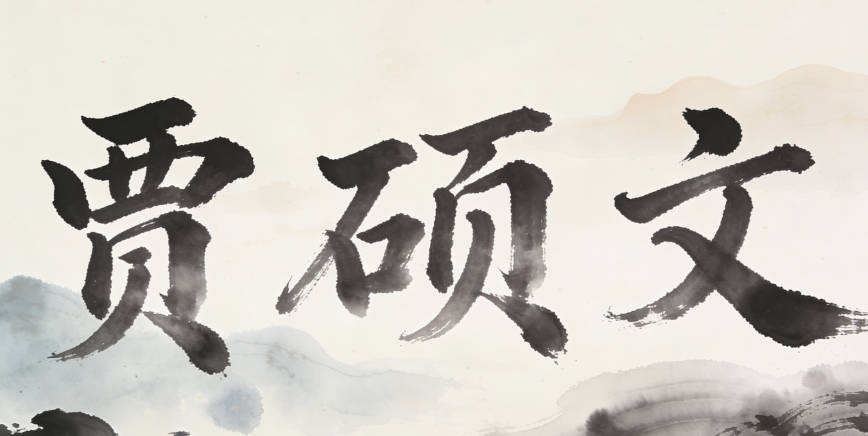 贾硕文